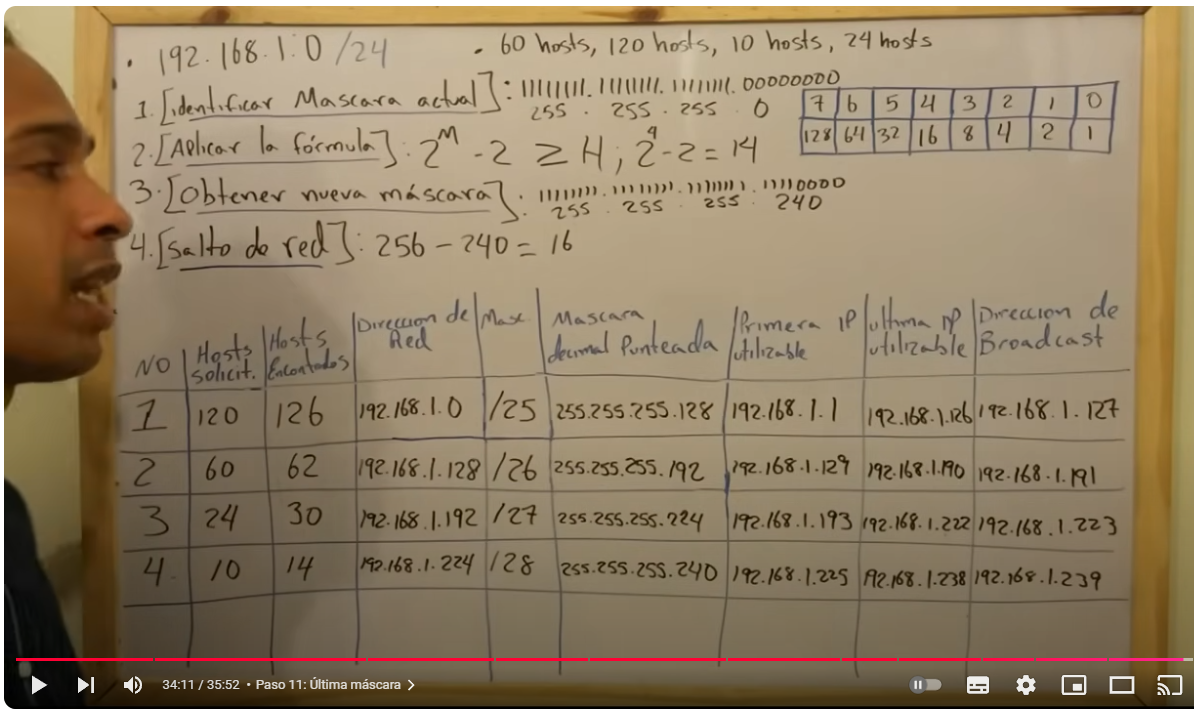 • 192.168.1.0 /24
• 60 hosts, 120 hosts, 10 hosts, 24 hosts
1. [identificar Mascara actual]: 11111111.11111111.11111111.00000000
255 . 255 . 255 . 0
7 6 5 4 3 2 1 0
128 64 32 16 8 4 2 1
2. [Aplicar la fórmula]: 2^M - 2 ≥ H ; 2^4 - 2 = 14
3. [Obtener nueva máscara]: 11111111.11111111.11111111.11110000
255 . 255 . 255 . 240
4. [Salto de red]: 256 - 240 = 16
NO Hosts solicit. Hosts Encontados Direccion de Red Masc Mascara decimal Punteada Primera IP utilizable ultima IP utilizable Direccion de Broadcast
1 120 126 192.168.1.0 /25 255.255.255.128 192.168.1.1 192.168.1.126 192.168.1.127
2 60 62 192.168.1.128 /26 255.255.255.192 192.168.1.129 192.168.1.190 192.168.1.191
3 24 30 192.168.1.192 /27 255.255.255.224 192.168.1.193 192.168.1.222 192.168.1.223
4 10 14 192.168.1.224 /28 255.255.255.240 192.168.1.225 192.168.1.238 192.168.1.239
34:11 / 35:52 • Paso 11: Última máscara >